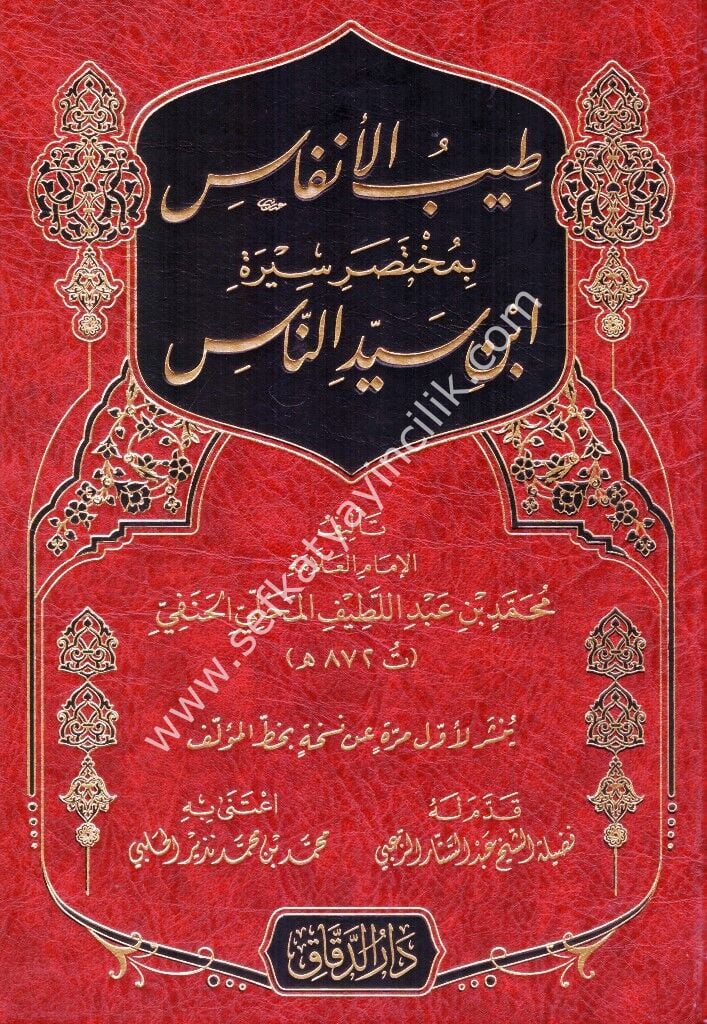 طِيبُ الأنفاس
بِمُخْتَصَرِ سِيْرَةِ
ابْنِ سَيِّدِ النَّاسِ
تأليف
الإمَامِ العَلَّامَة
مُحَمَّدِ بْنِ عَبْدِ اللَّطِيْفِ الحَنَفِيِّ
(تُ ٨٧٢ هـ)
يُنشَر لأوّل مرّة عن نسخةٍ بخطّ المؤلّف
قَدَّمَ لَهُ
فضيلة الشيخ عبد الستار
اعْتَنَى بِهِ
محمّد بن محمد نذير الحلبي
دَارُ الدَّقَّاق
www.sefkatyayincilik.com